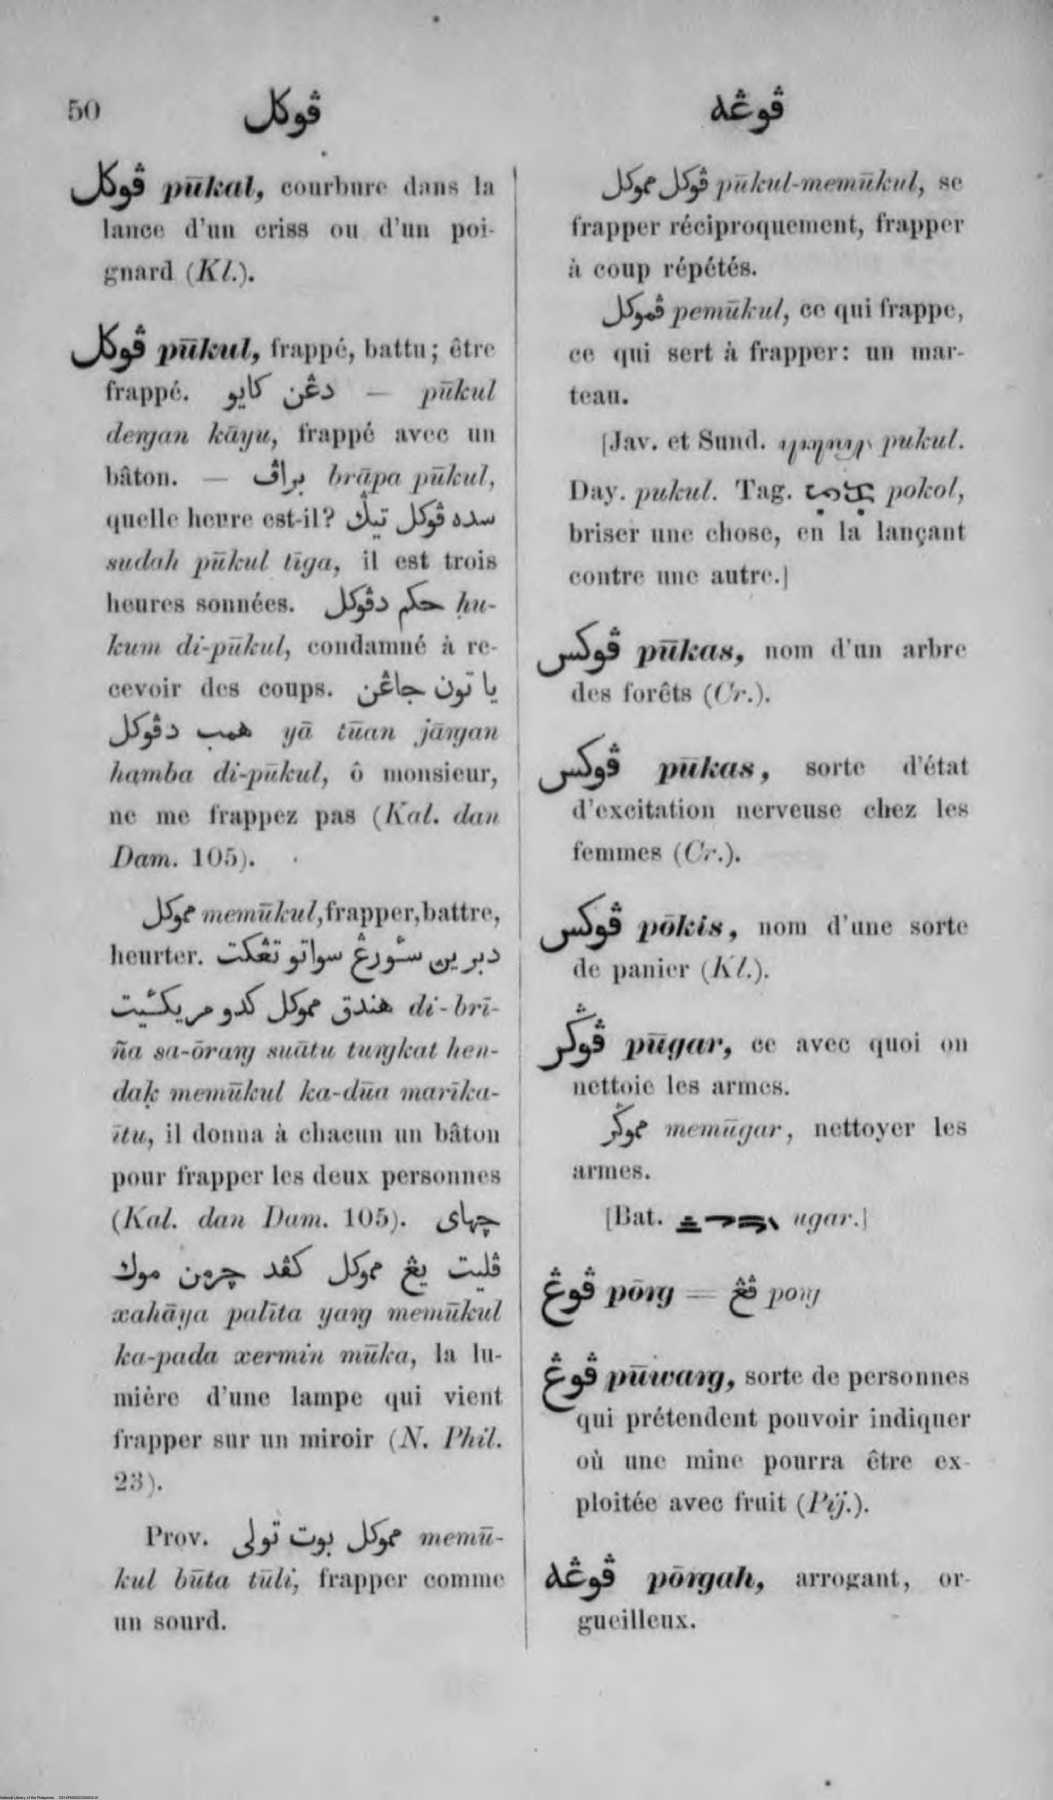 50 ڤوكل ڤوڠه
ڤوكل pūkal, courbure dans la
lance d'un criss ou d'un poi-
gnard (Kl.).
ڤوكل pūkul, frappé, battu; être
frappé. دڠن كايو — pūkul
deṅgan kāyu, frappé avec un
bâton. — براڤ brāpa pūkul,
quelle heure est-il? سده ڤوكل تيݢ
sudah pūkul tīga, il est trois
heures sonnées. حكم دڤوكل ḥu-
kum di-pūkul, condamné à re-
cevoir des coups. يا تون جاڠن
همب دڤوكل yā tūan jāṅgan
hamba di-pūkul, ô monsieur,
ne me frappez pas (Kal. dan
Dam. 105).
مموكل memūkul, frapper, battre,
heurter. دبرين سئورڠ سواتو تڠكت
هندق مموكل كدو مريكئيت di-brī-
ña sa-ōraṅg suātu tuṅgkat hen-
daḳ memūkul ka-dūa marīka-
ītu, il donna à chacun un bâton
pour frapper les deux personnes
(Kal. dan Dam. 105). چهاي
ڤليت يڠ مموكل كڤد چرمن موك
xahāya palīta yaṅg memūkul
ka-pada xermin mūka, la lu-
mière d'une lampe qui vient
frapper sur un miroir (N. Phil.
23).
Prov. مموكل بوت تولي memū-
kul būta tūli, frapper comme
un sourd.
ڤوكل مموكل pūkul-memūkul, se
frapper réciproquement, frapper
à coup répétés.
ڤموكل pemūkul, ce qui frappe,
ce qui sert à frapper: un mar-
teau.
[Jav. et Sund. pukul.
Day. pukul. Tag. pokol,
briser une chose, en la lançant
contre une autre.]
ڤوكس pūkas, nom d'un arbre
des forêts (Cr.).
ڤوكس pūkas, sorte d'état
d'excitation nerveuse chez les
femmes (Cr.).
ڤوكس pōkis, nom d'une sorte
de panier (Kl.).
ڤوݢر pūgar, ce avec quoi on
nettoie les armes.
موݢر memūgar, nettoyer les
armes.
[Bat. ugar.]
ڤوڠ pōṅg = ڤڠ poṅg
ڤوڠ pūwaṅg, sorte de personnes
qui prétendent pouvoir indiquer
où une mine pourra être ex-
ploitée avec fruit (Pij.).
ڤوڠه pōṅgah, arrogant, or-
gueilleux.